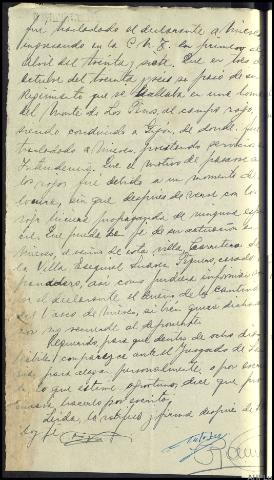 fue trasladado el declarante a Mieres
ingresando en la C.N.T. en primero de
Abril del treinta y siete. Que en 
octubre del treinta y seis se pasó de su
Regimiento que se hallaba en una loma
del Monte de Los Pinos, al campo rojo,
siendo conducido a Gijón, de donde fue
trasladado a Mieres, prestando servicio en
Intendencia. Que el motivo de pasarse a
los rojos fue debido a un momento de
locura, sin que después de verse con los
rojos hiciera propaganda de ninguna espe-
cie. Que puede dar fe de su actuación en
Mieres, el vecino de esta villa, Carretera de
la Villa Ezequiel Suarez, casado
panadero, así como pudiera informar
por el declarante el dueño de la cantina
Los Vascos de Mieres, si bien quien dicho
no recuerda el deponente
Requerido, para que dentro de ocho días
hábiles comparezca ante el Juzgado de
para alegar personalmente o por escri-
to, lo que estime oportuno, dice que
hacerlo por escrito;
Leída, la ratifica y firma después de
Doy fe